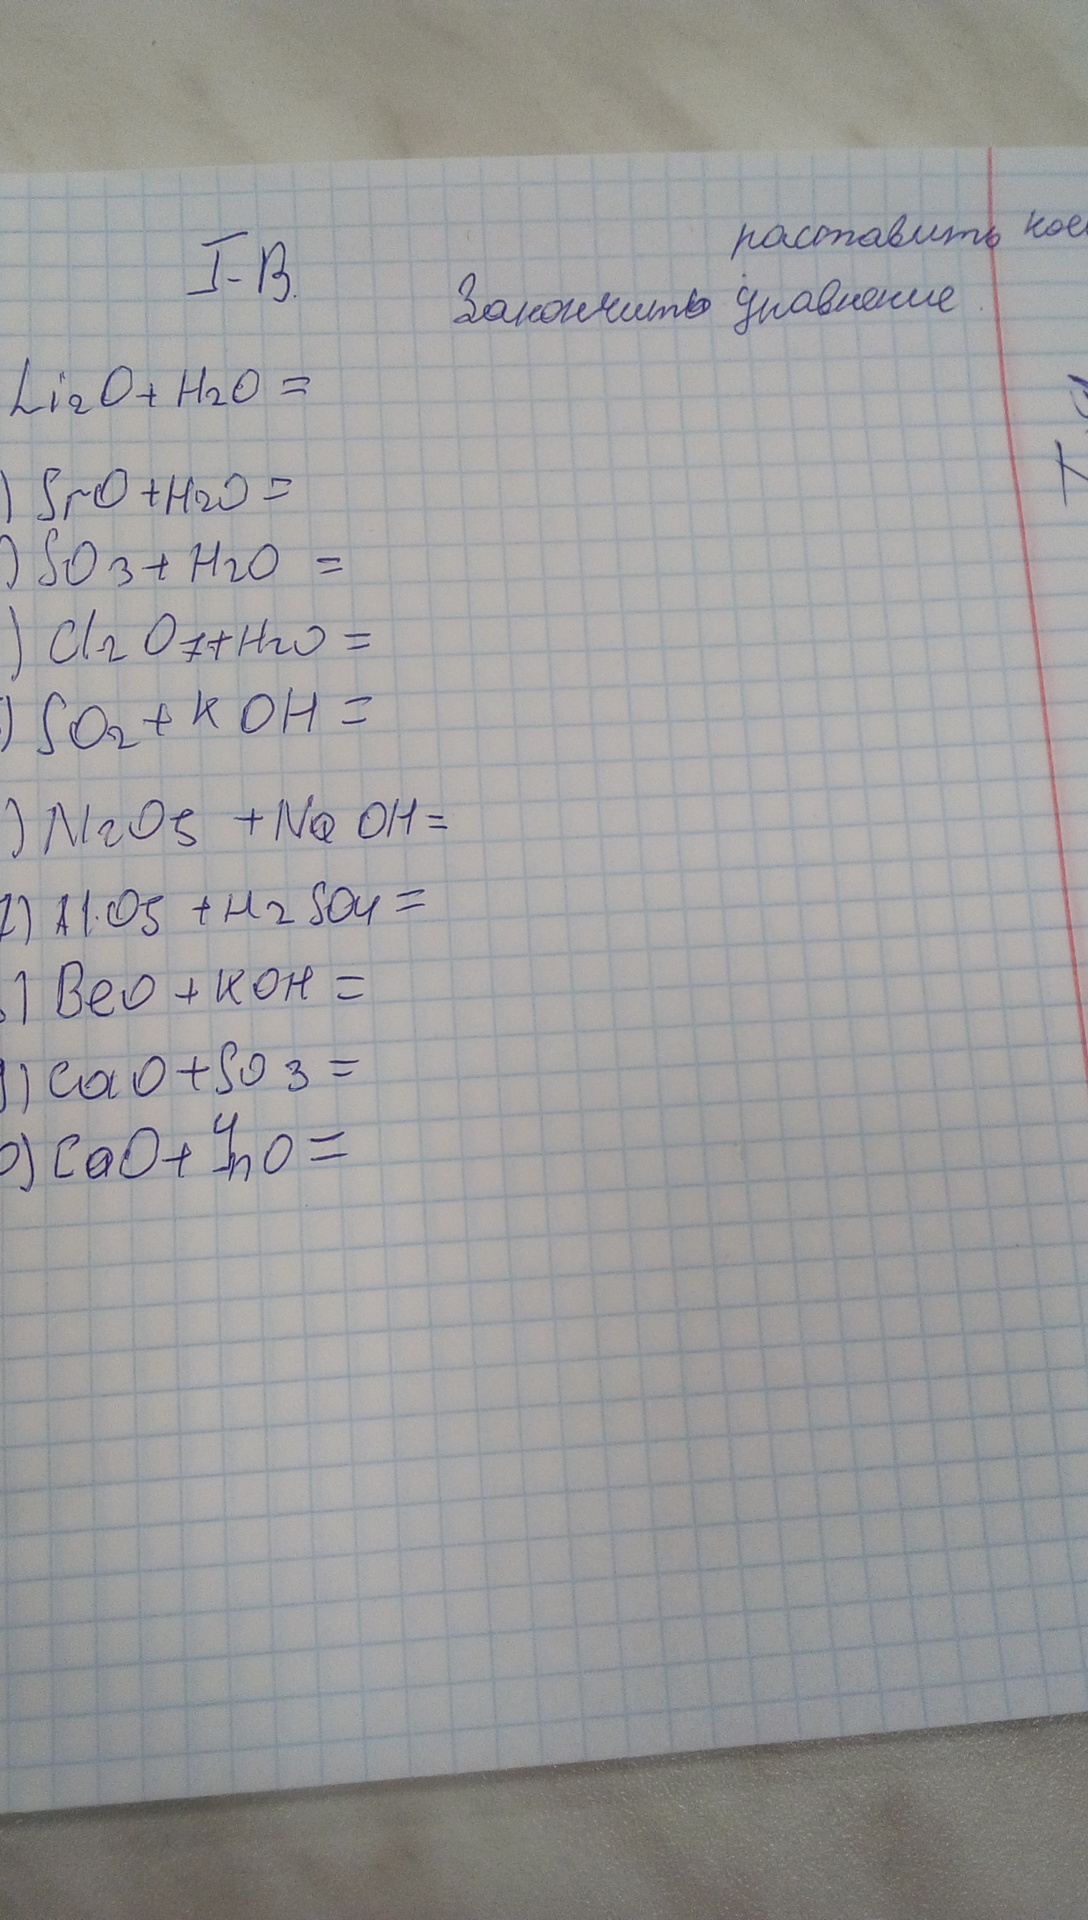 I-В.
расставить
Закончить уравнение
Li2O + H2O =
) SrO + H2O =
) SO3 + H2O =
) Cl2O7 + H2O =
) SO2 + KOH =
) N2O5 + NaOH =
7) Al2O5 + H2SO4 =
) BeO + KOH =
) CaO + SO3 =
) CaO + O =